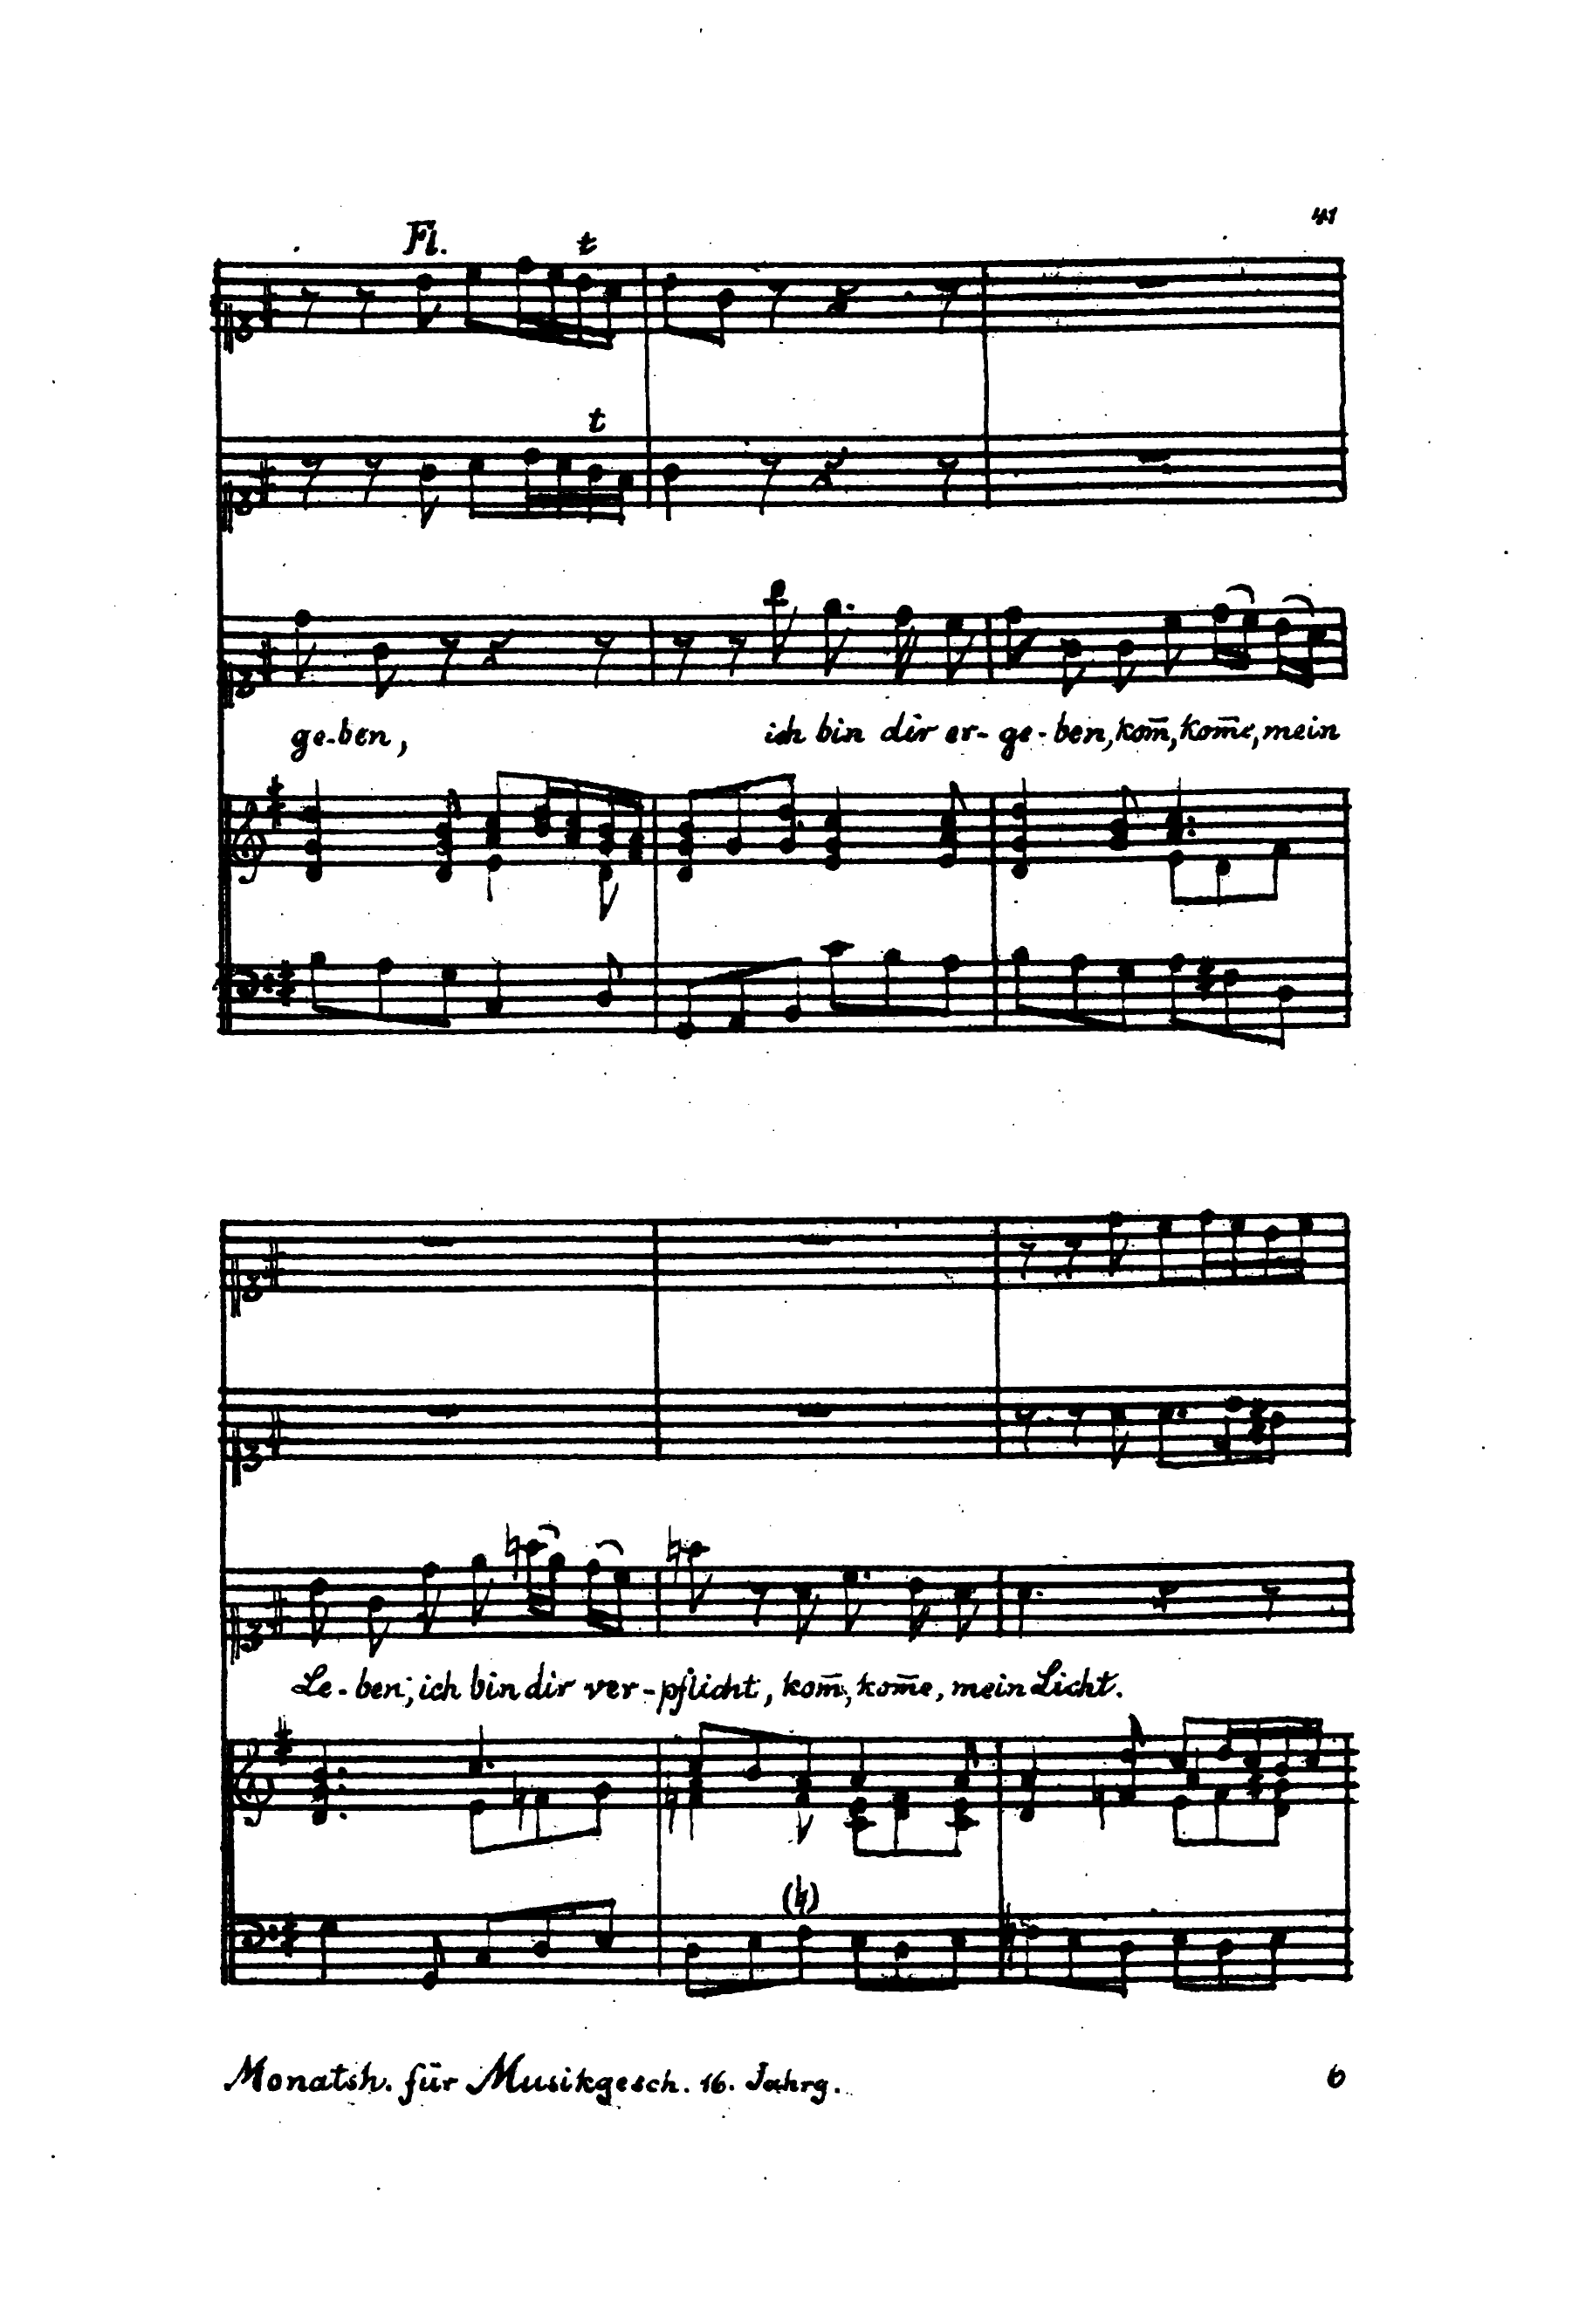 41
Fl. t
t
ge-ben, ich bin dir er-ge-ben, kom̄, kom̄e, mein
Le-ben, ich bin dir ver-pflicht, kom̄, kom̄e, mein Licht.
Monatsh. für Musikgesch. 16. Jahrg. 6